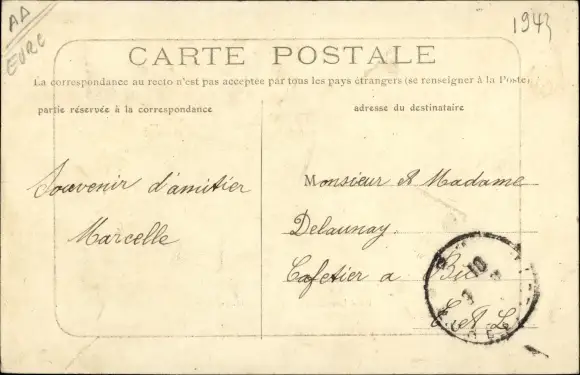 AD
EURE
1943
CARTE POSTALE
La correspondance au recto n'est pas acceptée par tous les pays étrangers (se renseigner à la Poste)
partie réservée à la correspondance
adresse du destinataire
Souvenir d'amitier
Marcelle
Monsieur et Madame
Delaunay
Cafetier a
E. et L.
10